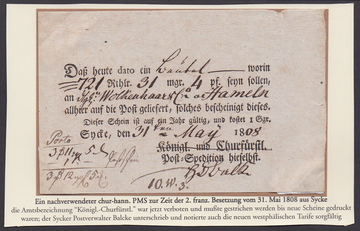 Daß heute dato ein Beutel worin
721 Rthlr. 31 mgr. 4 pf. seyn sollen,
an Wolkenhaar & Co a Hameln
allhier auf die Post geliefert, solches bescheiniget dieses.
Dieser Schein ist auf ein Jahr gültig, und kostet 1 Ggr.
Sycke, den 31 ten May 1808
Porto
Königl. und Churfürstl.
Post-Spedition hieselbst.
10. W. 3.
Ein nachverwendeter chur-hann. PMS zur Zeit der 2. franz. Besetzung vom 31. Mai 1808 aus Sycke
die Amtsbezeichnung "Königl.-Churfürstl." war jetzt verboten und mußte gestrichen werden bis neue Scheine gedruckt
waren; der Sycker Postverwalter Balcke unterschrieb und notierte auch die neuen westphälischen Tarife sorgfältig